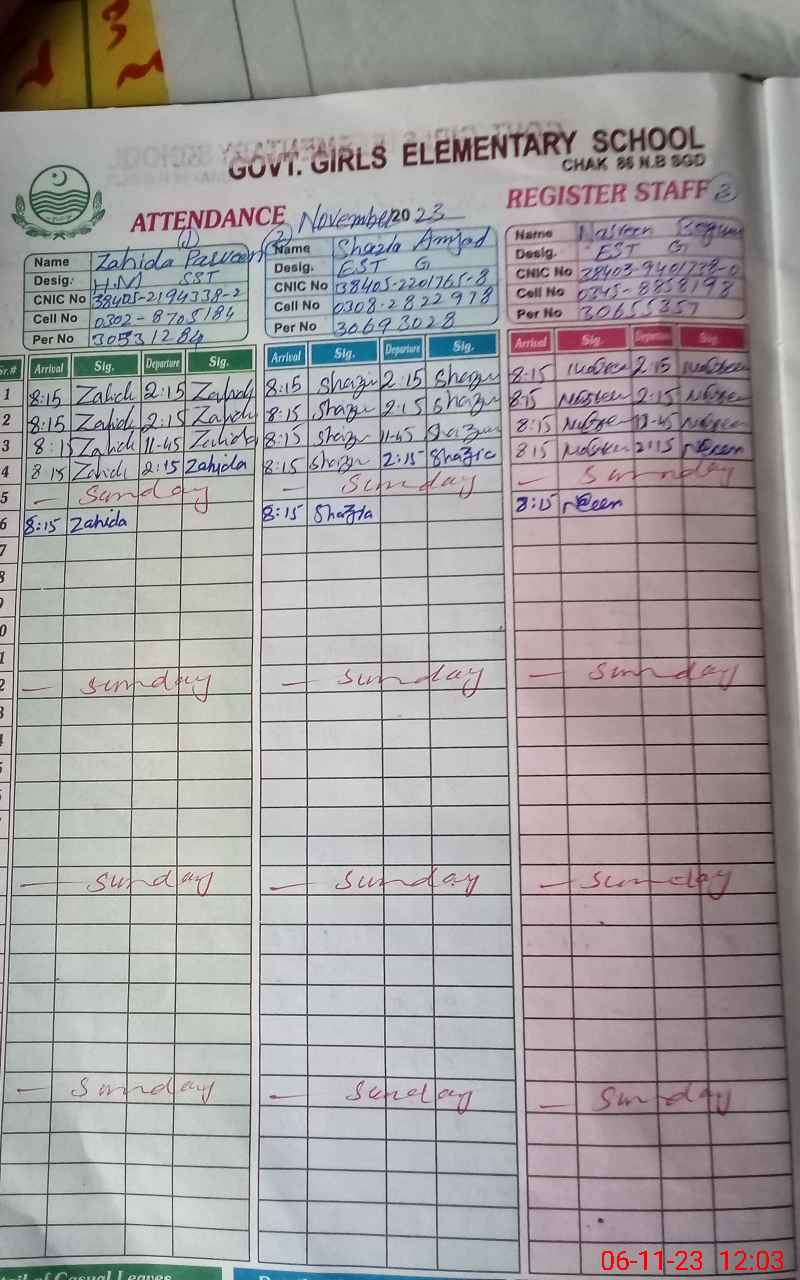 GOVT. GIRLS ELEMENTARY SCHOOL
CHAK 86 N.B SGD
ATTENDANCE November 2023 REGISTER STAFF
(1) (2) (3)
Name Zahida Parveen Name Shazia Amjad Name Nasreen Begum
Desig: H.M SST Desig. EST G Desig. EST G
CNIC No 38405-2194338-2 CNIC No 38405-2201765-8 CNIC No
Cell No 0302-8705184 Cell No 0308-2822978 Cell No 0345-8858198
Per No 30531284 Per No 30693028 Per No 30655357
Sr.# Arrival Sig. Departure Sig. Arrival Sig. Departure Sig. Arrival Sig. Departure Sig.
1 8:15 Zahid 2:15 Zahid 8:15 Shazia 2:15 Shazia 8:15 Nasreen 2:15 Nasreen
2 8:15 Zahid 2:15 Zahid 8:15 Shazia 2:15 Shazia 8:15 Nasreen 2:15 Nasreen
3 8:15 Zahid 11-45 Zahida 8:15 Shazia 11-45 Shazia 8:15 Nasreen 11-45 Nasreen
4 8 15 Zahid 2:15 Zahida 8:15 Shazia 2:15 Shazia 8:15 Nasreen 2:15 Nareen
5 — Sunday — Sunday — Sunday
6 8:15 Zahida 8:15 Shazia 8:15
7
8
— Sunday — Sunday — Sunday
— Sunday — Sunday — Sunday
— Sunday — Sunday — Sunday
of Casual Leaves
06-11-23 12:03